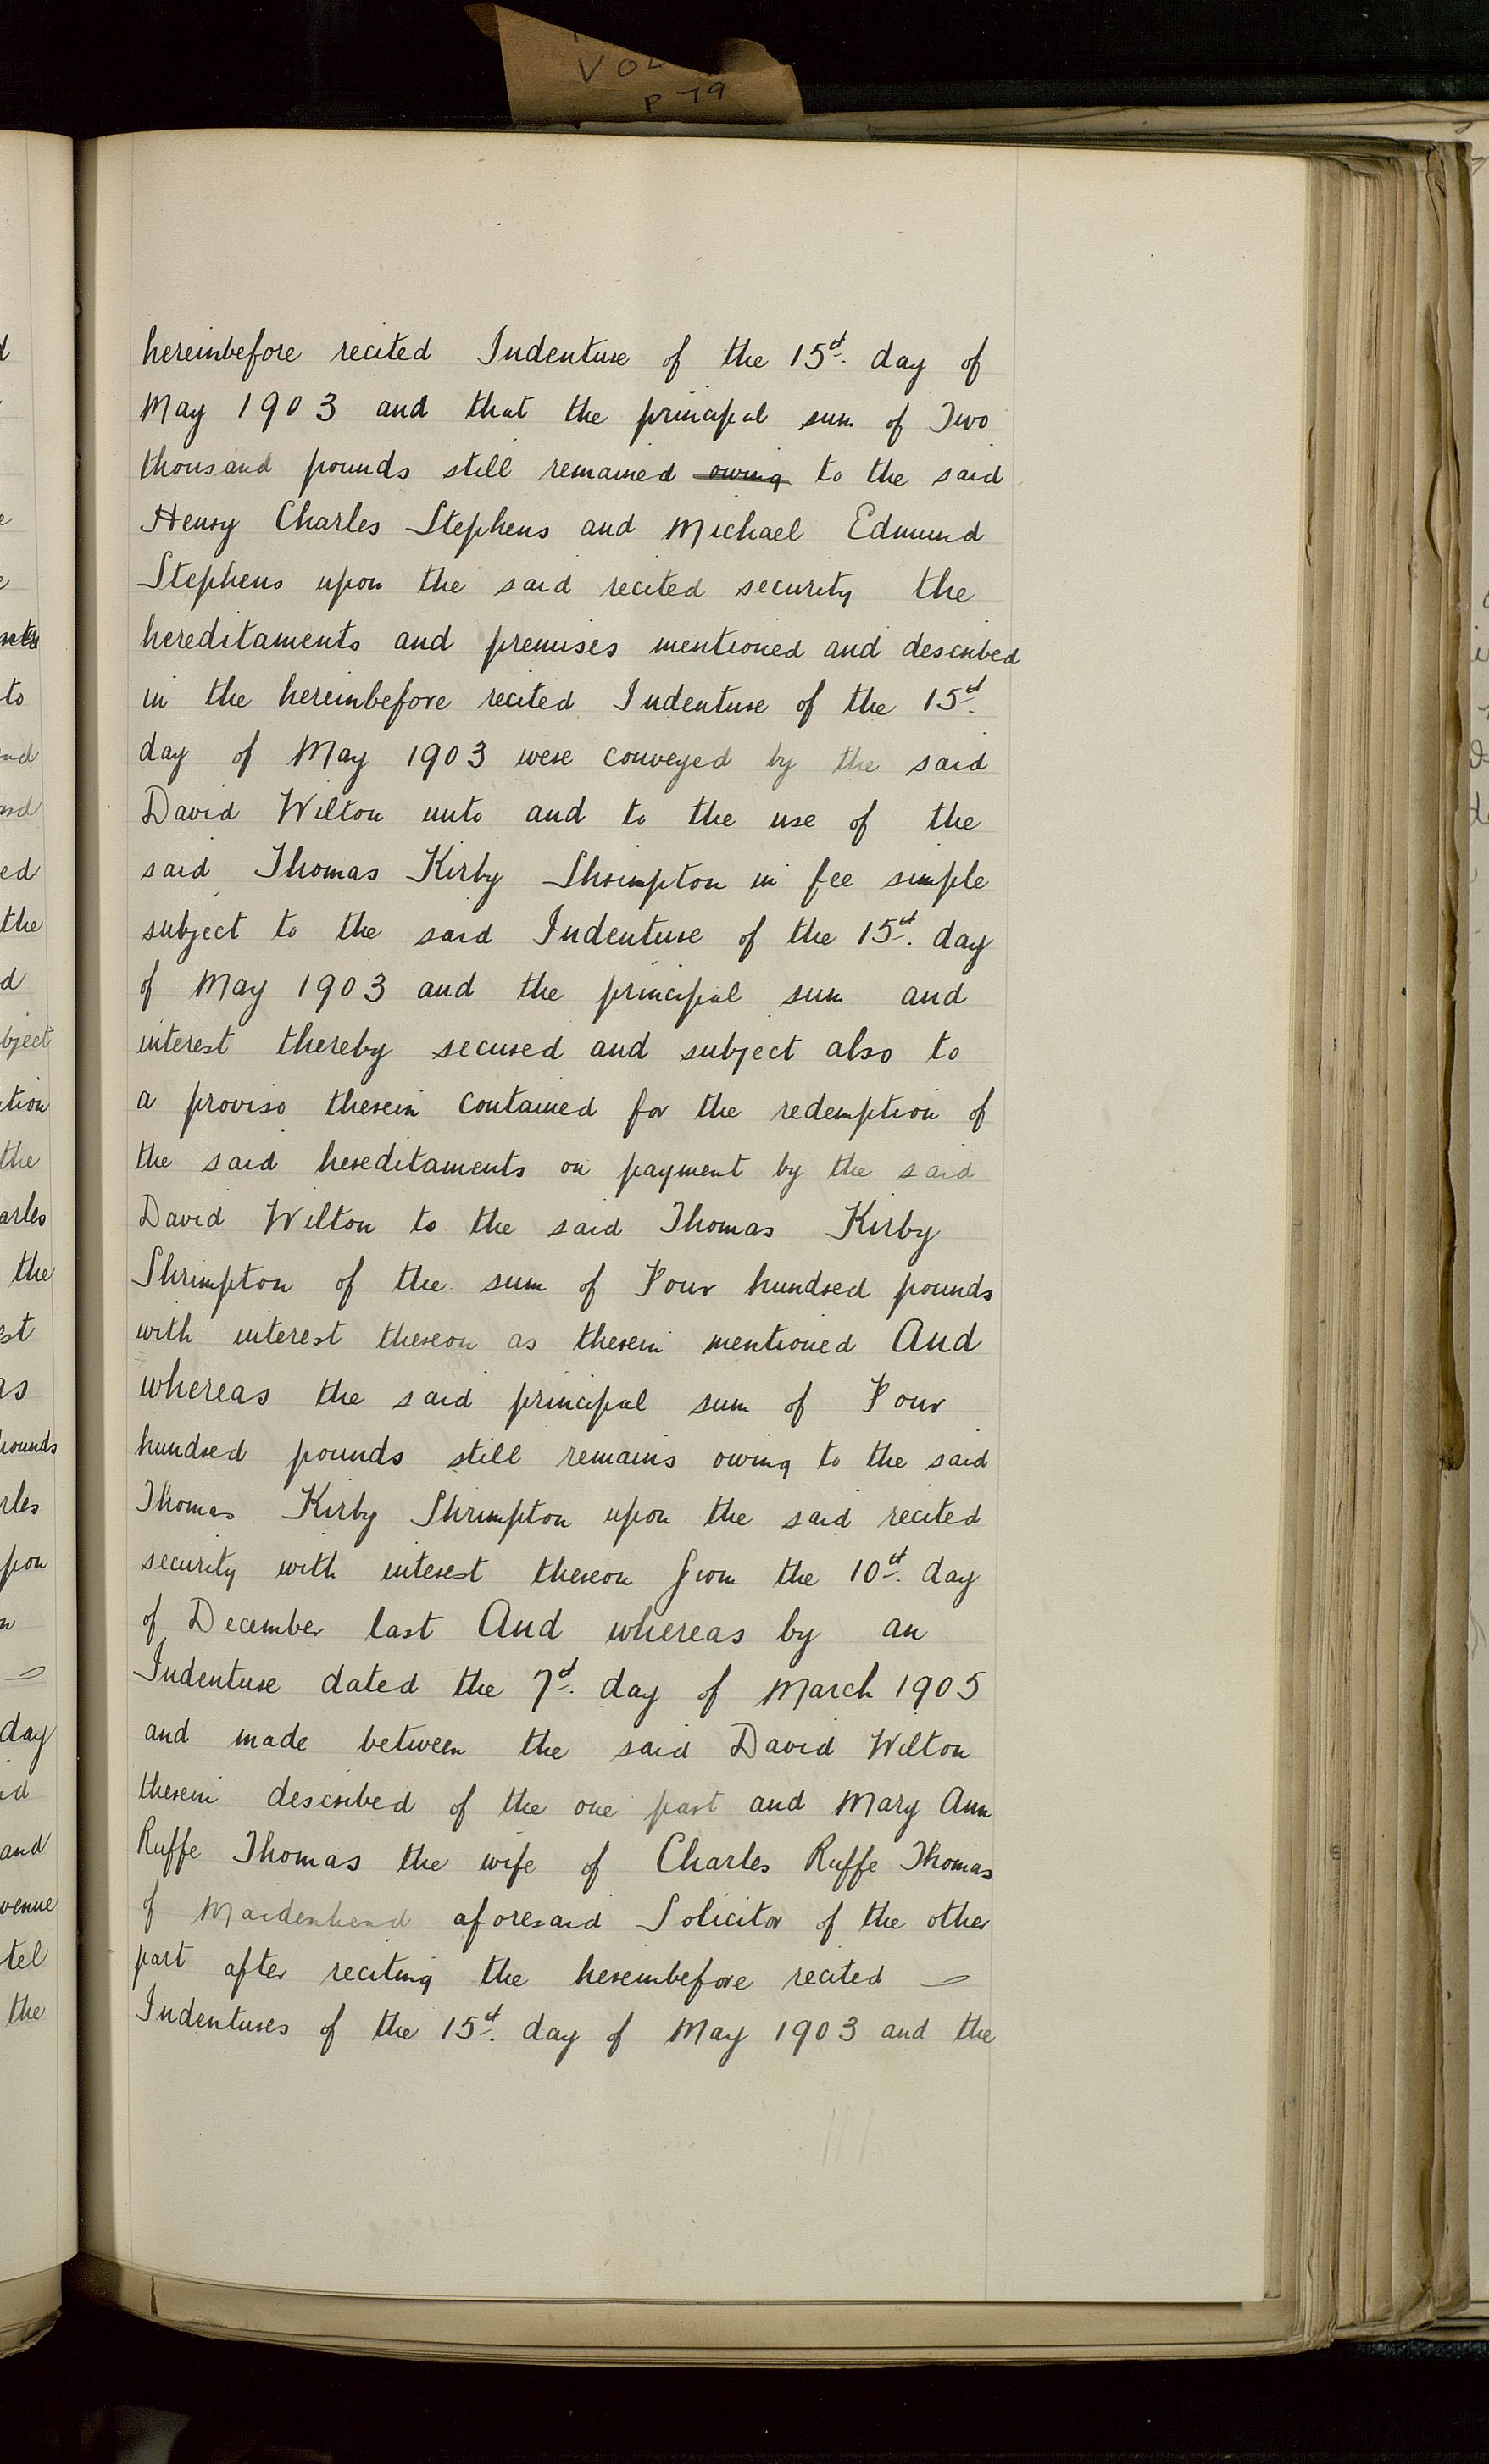 VOL
P 79
hereinbefore recited Indenture of the 15th. day of
May 1903 and that the principal sum of Two
thousand pounds still remained owing to the said
Henry Charles Stephens and Michael Edmund
Stephens upon the said recited security the
hereditaments and premises mentioned and described
in the hereinbefore recited Indenture of the 15th.
day of May 1903 were conveyed by the said
David Wilton unto and to the use of the
said Thomas Kirby Shrimpton in fee simple
subject to the said Indenture of the 15th. day
of May 1903 and the principal sum and
interest thereby secured and subject also to
a proviso therein contained for the redemption of
the said hereditaments on payment by the said
David Wilton to the said Thomas Kirby
Shrimpton of the sum of Four hundred pounds
with interest thereon as therein mentioned And
whereas the said principal sum of Four
hundred pounds still remains owing to the said
Thomas Kirby Shrimpton upon the said recited
security with interest thereon from the 10th. day
of December last And whereas by an
Indenture dated the 7th. day of March 1905
and made between the said David Wilton
therein described of the one part and Mary Ann
Ruffe Thomas the wife of Charles Ruffe Thomas
of Maidenhead aforesaid Solicitor of the other
part after reciting the hereinbefore recited
Indentures of the 15th. day of May 1903 and the